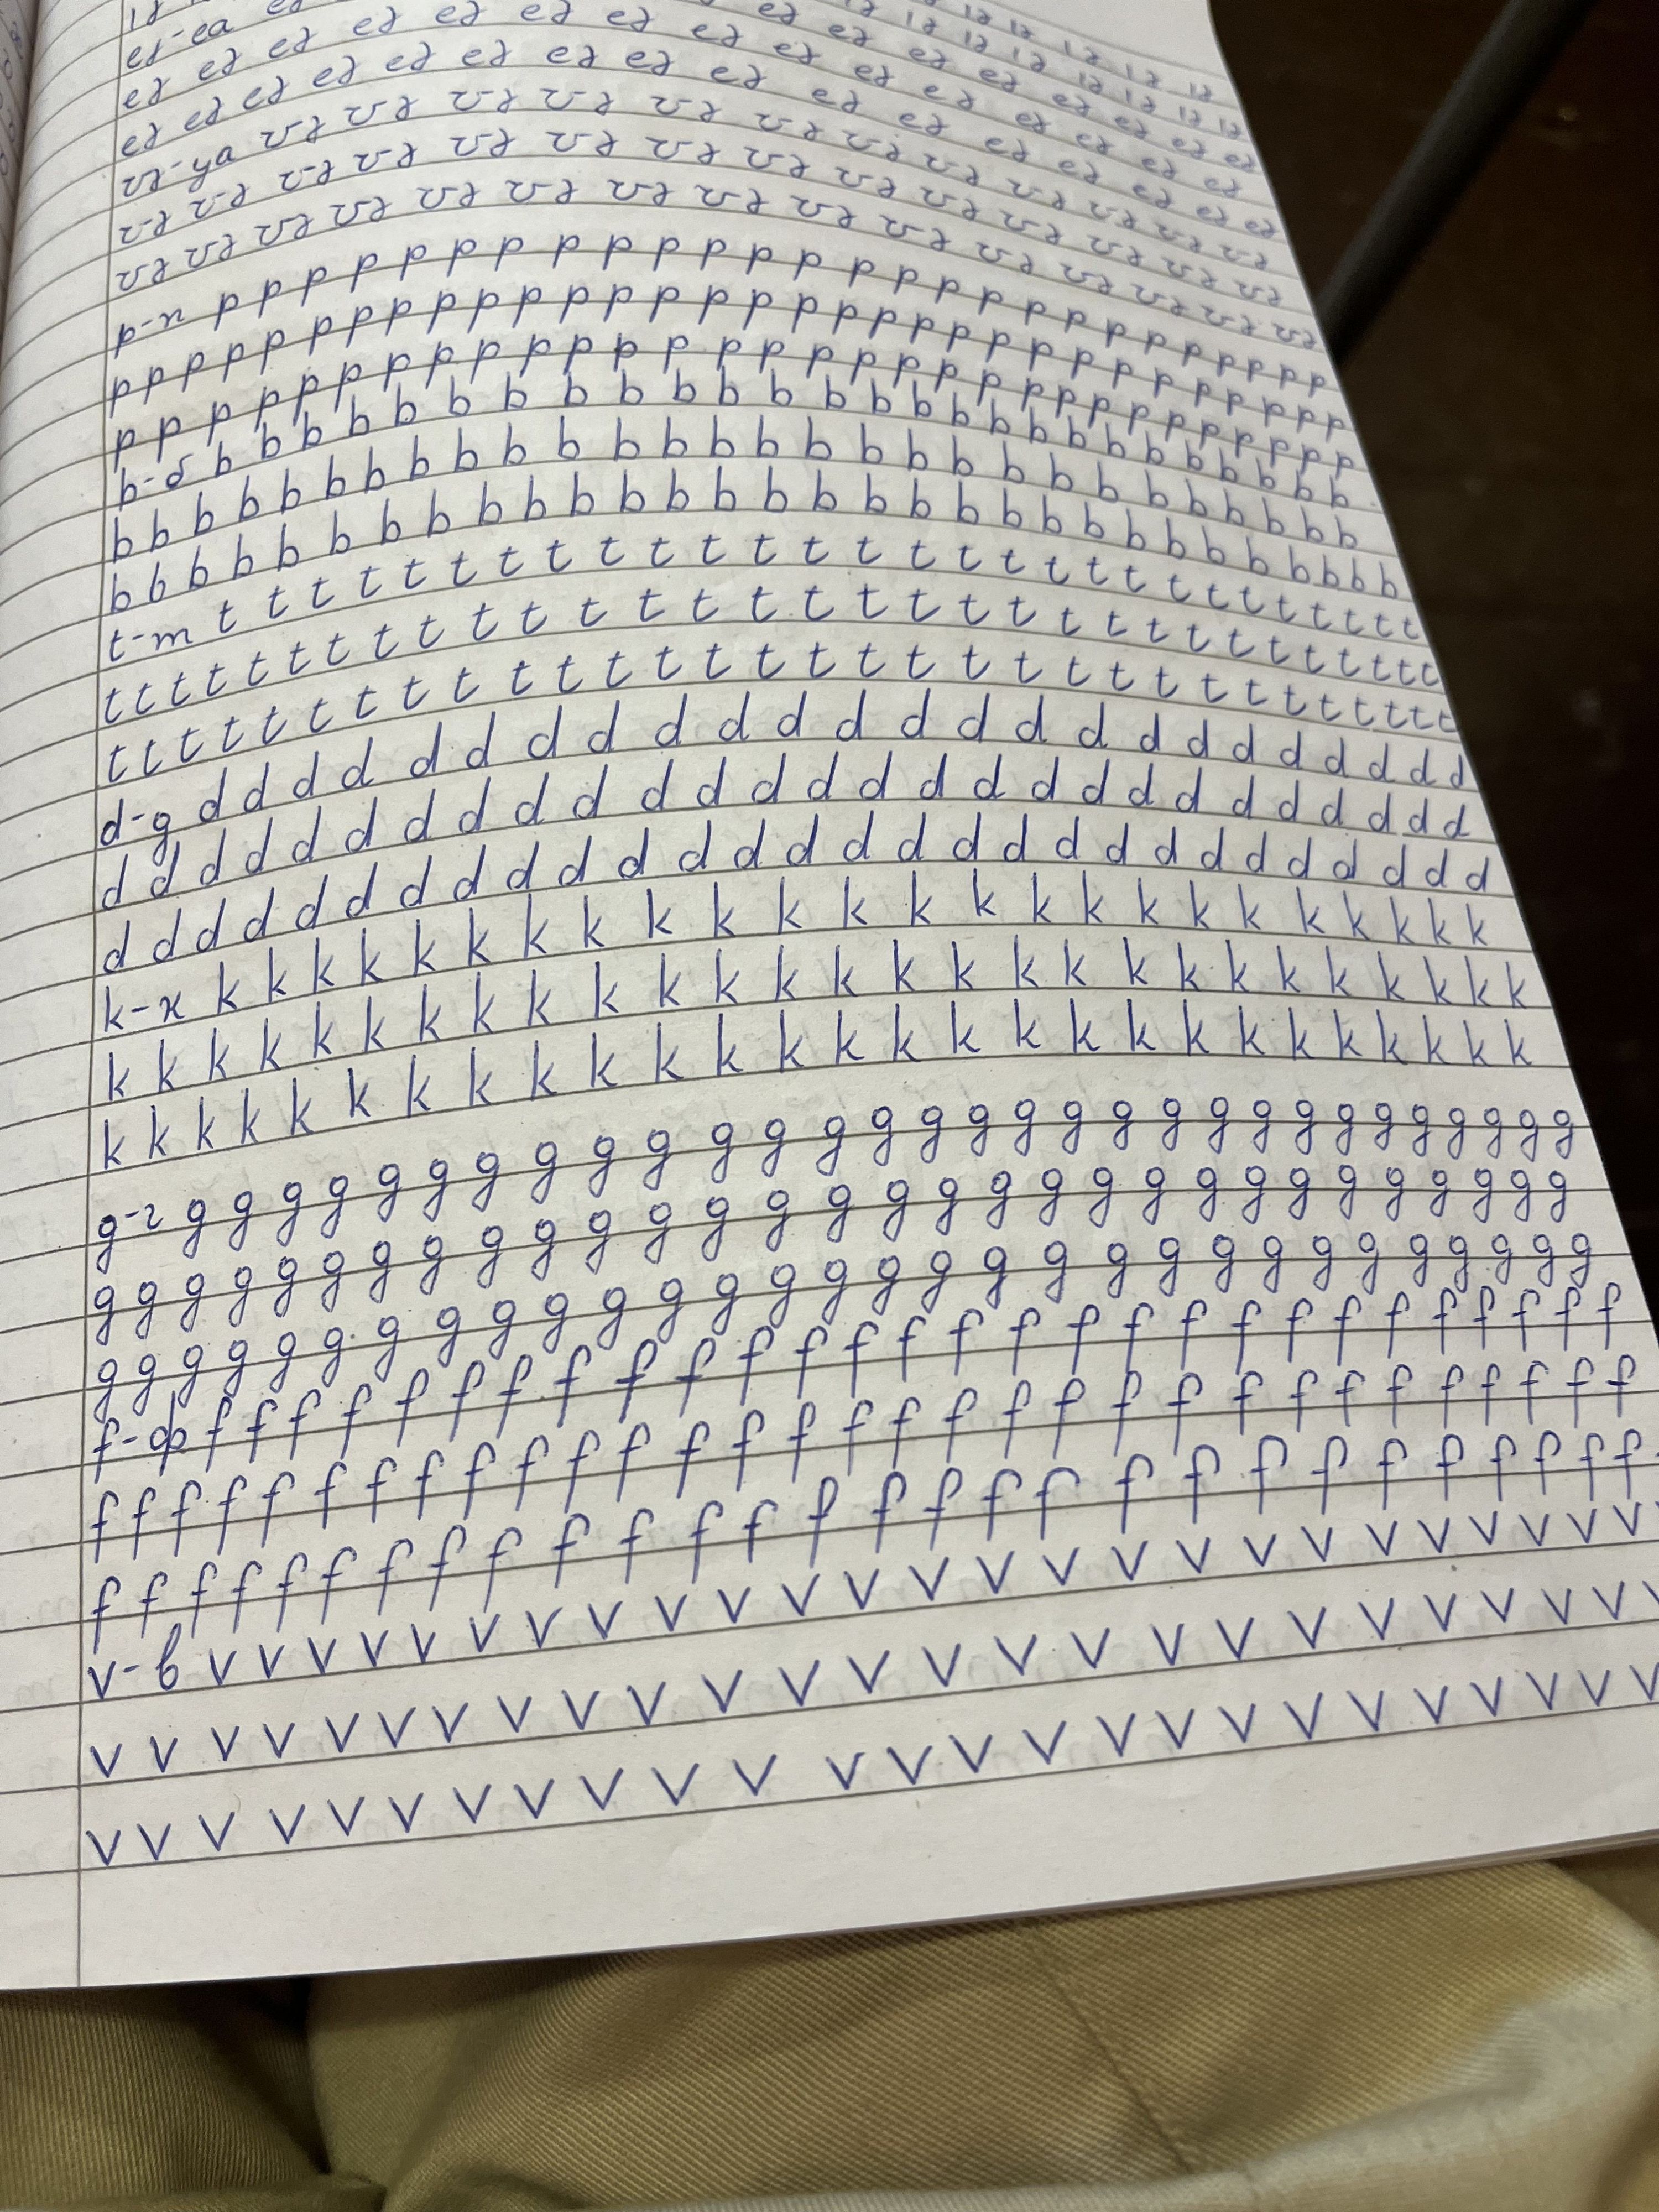 eə-еа eə eə eə eə eə eə eə eə eə eə eə eə eə eə
eə eə eə eə eə eə eə eə eə eə eə eə eə eə eə eə
eə eə eə eə eə eə eə eə eə eə eə eə eə eə eə eə
ʊə-уа ʊə ʊə ʊə ʊə ʊə ʊə ʊə ʊə ʊə ʊə ʊə ʊə ʊə
ʊə ʊə ʊə ʊə ʊə ʊə ʊə ʊə ʊə ʊə ʊə ʊə ʊə ʊə
ʊə ʊə ʊə ʊə ʊə ʊə ʊə ʊə ʊə ʊə ʊə ʊə ʊə ʊə ʊə
p-п p p p p p p p p p p p p p p p p p p p p p p p p p p
p p p p p p p p p p p p p p p p p p p p p p p p p p p p p
p p p p p p p p p p p p p p p p p p p p p p p p p p p p p
b-б b b b b b b b b b b b b b b b b b b b b b b b b b
b b b b b b b b b b b b b b b b b b b b b b b b b b b
b b b b b b b b b b b b b b b b b b b b b b b b b b b b
t-т t t t t t t t t t t t t t t t t t t t t t t t t t t t
t t t t t t t t t t t t t t t t t t t t t t t t t t t t t
t t t t t t t t t t t t t t t t t t t t t t t t t t t t
d-д d d d d d d d d d d d d d d d d d d d d d d d
d d d d d d d d d d d d d d d d d d d d d d d d d d
d d d d d d d d d d d d d d d d d d d d d d d d d d
k-к k k k k k k k k k k k k k k k k k k k k k k
k k k k k k k k k k k k k k k k k k k k k k k k k
k k k k k k k k k k k k k k k k k k k k k k k k k
g-г g g g g g g g g g g g g g g g g g g g g g g g g g g g g
g g g g g g g g g g g g g g g g g g g g g g g g g g g g
g g g g g g g g g g g g g g g g g g g g g g g g g g g g
f-ф f f f f f f f f f f f f f f f f f f f f f f f f f
f f f f f f f f f f f f f f f f f f f f f f f f f f f
f f f f f f f f f f f f f f f f f f f f f f f f f
v-в v v v v v v v v v v v v v v v v v v v v v v v v
v v v v v v v v v v v v v v v v v v v v v v v
v v v v v v v v v v v v v v v v v v v v v v v